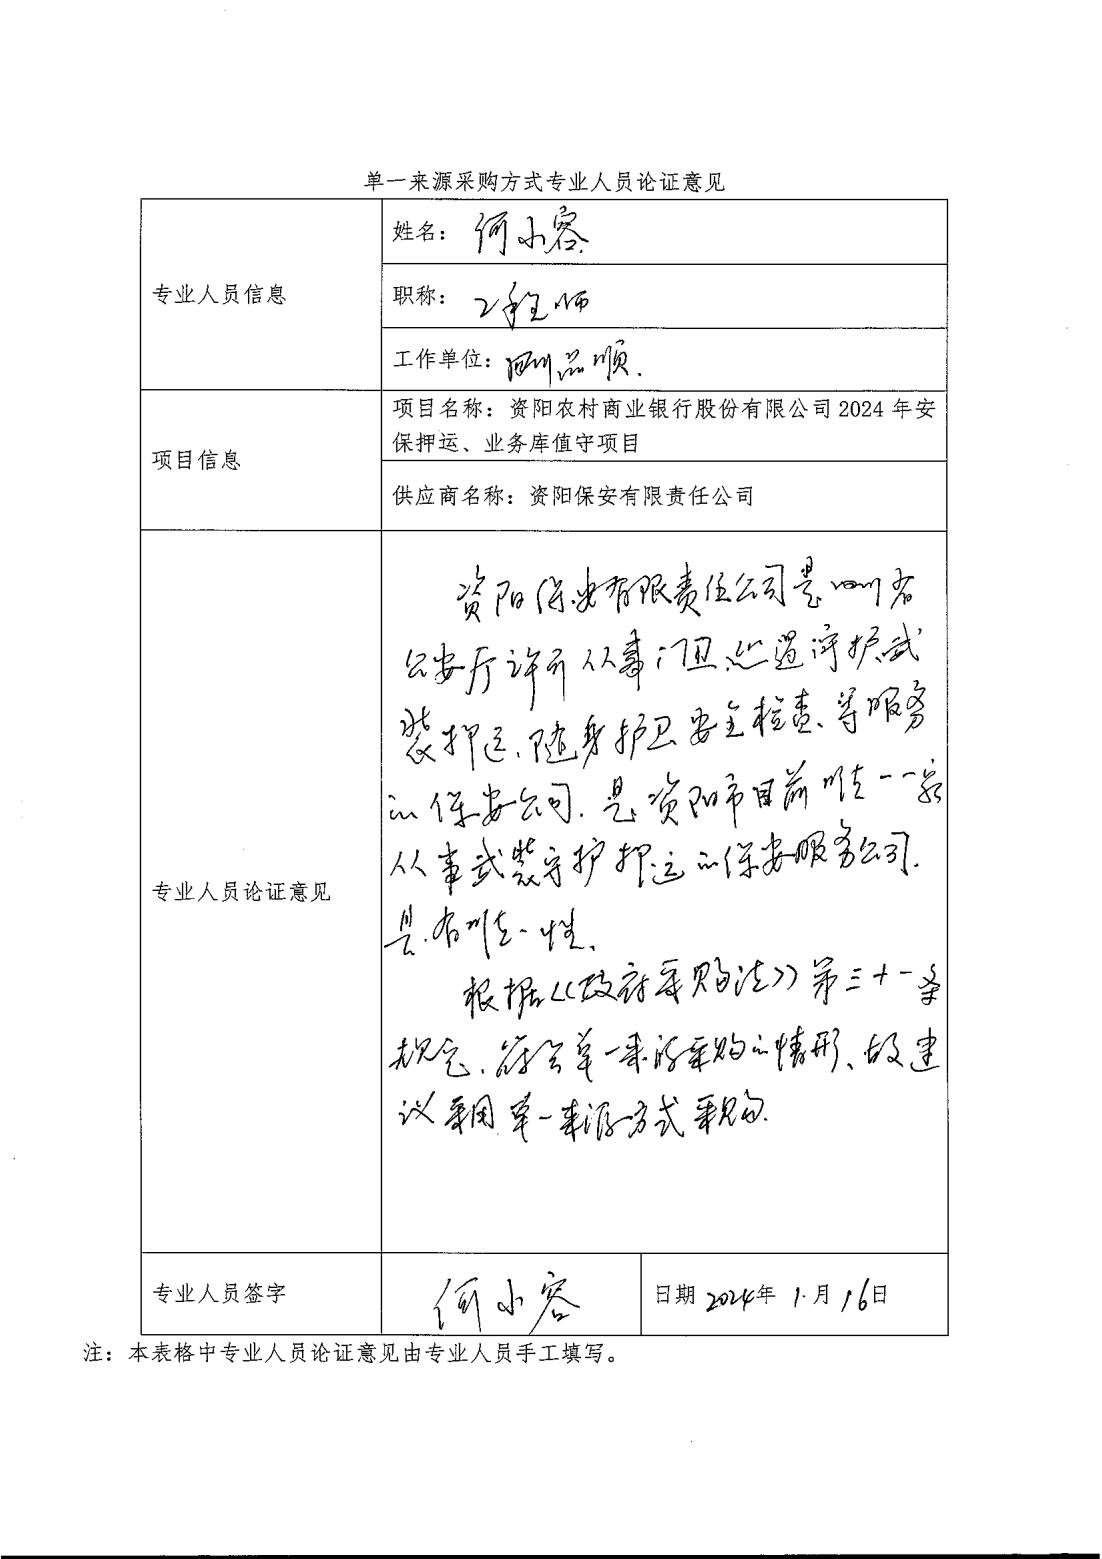 单一来源采购方式专业人员论证意见
专业人员信息
姓名：何小容
职称：工程师
工作单位：四川品顺.
项目信息
项目名称：资阳农村商业银行股份有限公司2024年安
保押运、业务库值守项目
供应商名称：资阳保安有限责任公司
专业人员论证意见
资阳保安有限责任公司是四川省
公安厅许可从事门卫、巡逻、守护、武
装押运、随身护卫、安全检查、等服务
的保安公司.是资阳市目前唯一一家
从事武装守护押运的保安服务公司.
具有唯一性、
根据《政府采购法》第三十一条
规定、符合单一来源采购的情形、故建
议采用单一来源方式采购.
专业人员签字
何小容
日期 2024年 1.月 16日
注：本表格中专业人员论证意见由专业人员手工填写。